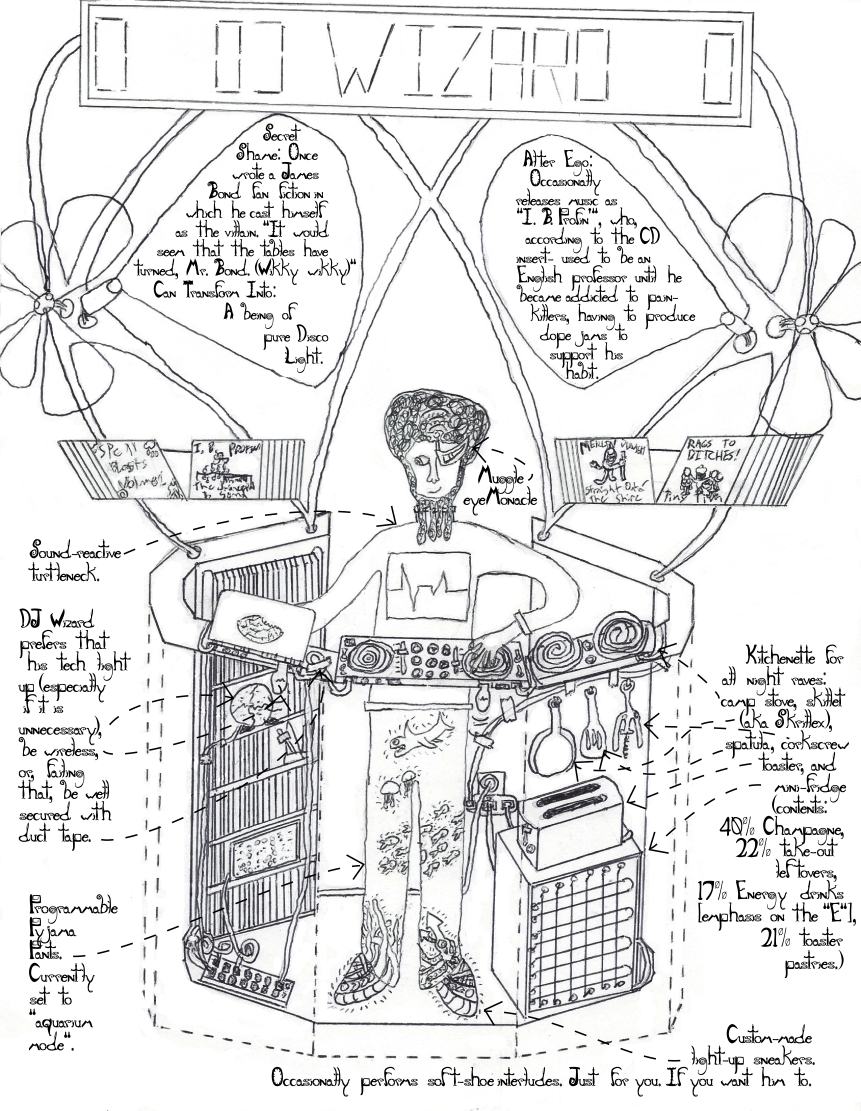 DJ WIZARD
Secret
Shame: Once
wrote a James
Bond fan fiction in
which he cast himself
as the villain. "It would
seem that the tables have
turned, Mr. Bond. (Wikky wikky)"
Can Transform Into:
A being of
pure Disco
Light.
Alter Ego:
Occasionally
releases music as
"I. B. Profin'", who,
according to the CD
insert- used to be an
English professor until he
became addicted to pain-
killers, having to produce
dope jams to
support his
habit.
Blasts
Volume 1
I. B. PROFIN'
MERLIN
Straight Outta'
The Shire
RAGS TO
DITCHES!
Muggle,
eyeMonacle
Sound-reactive
turtleneck.
DJ Wizard
prefers that
his tech light
up (especially
if it is
unnecessary),
be wireless,
or, failing
that, be well
secured with
duct tape.
Programmable
Pyjama
Pants.
Currently
set to
"aquarium
mode".
Kitchenette for
all night raves:
camp stove, skillet
(aka Skrillex),
spatula, corkscrew
toaster, and
mini-fridge
(contents:
40% Champagne,
22% take-out
leftovers,
17% Energy drinks
[emphasis on the "E"],
21% toaster
pastries.)
Custom-made
light-up sneakers.
Occasionally performs soft-shoe interludes. Just for you. If you want him to.